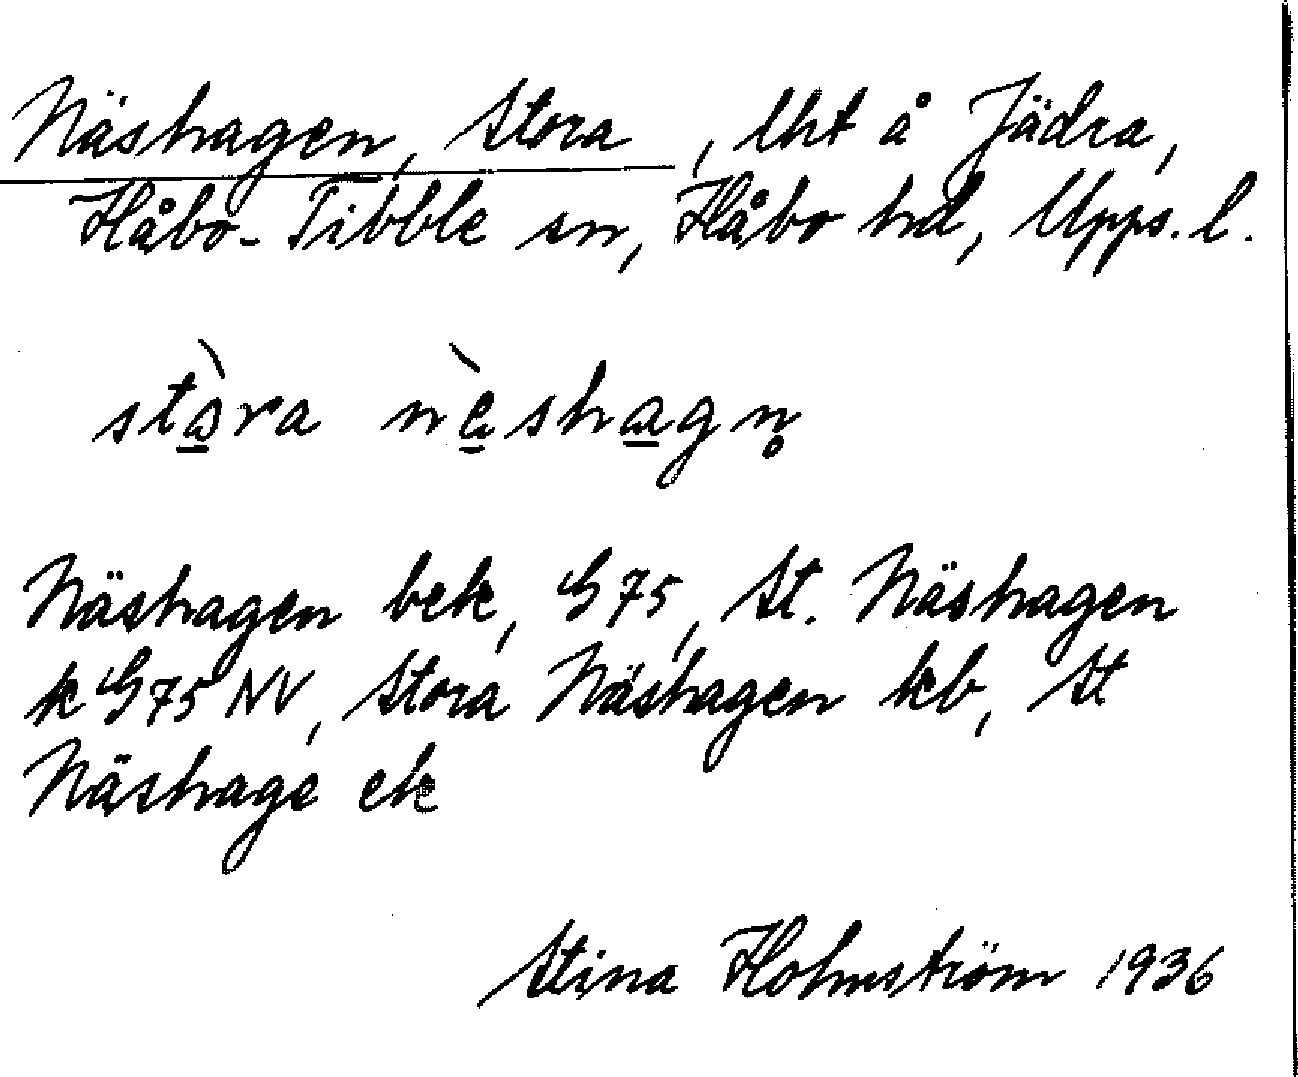 Näshagen, Stora, lht å Jädra,
Håbo-Tibble sn, Håbo hd, Upps. l.
stò̱ra nè̱sha̱gn̥
Näshagen bek, G75, St. Näshagen
k G75 NV, Stora Näshagen kb, St
Näshage ek
Stina Holmström 1936